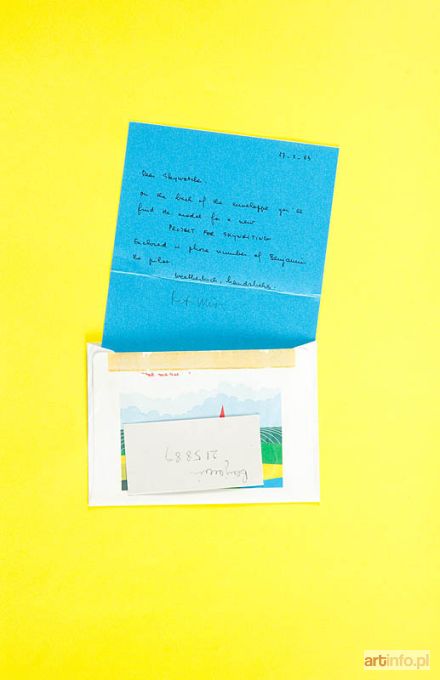 17-X-83
Dear Skywatch
on the back of the enveloppe you'll
find the model for a new
PROJECT FOR SKYWRITING
Enclosed is phone number of Benjamin
the pilot.
benjamin
215889
artinfo.pl